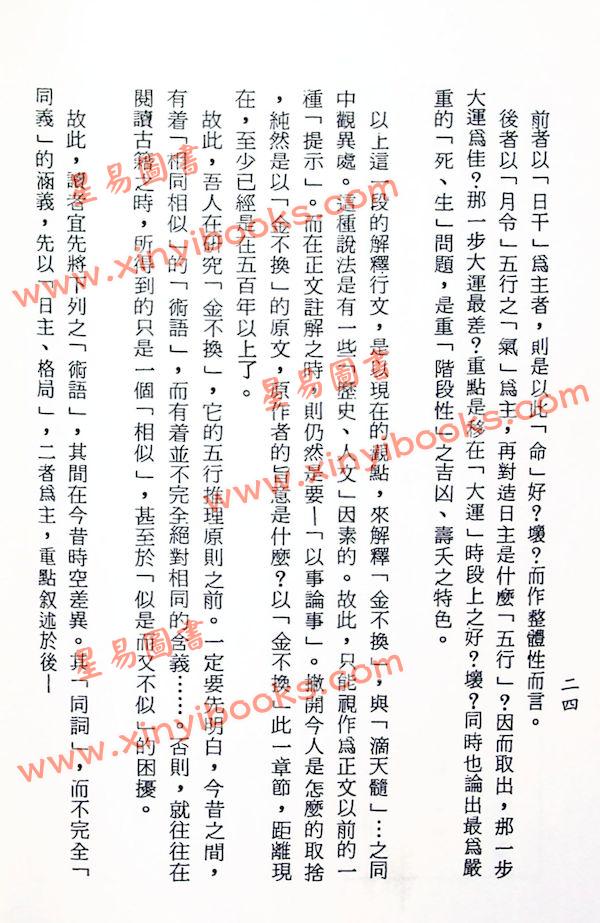 二四
前者以「日干」爲主者，則是以此「命」好？壞？而作整體性而言。
後者以「月令」五行之「氣」爲主，再對造日主是什麼「五行」？因而取出，那一步
大運爲佳？那一步大運最差？重點是移在「大運」時段上之好？壞？同時也論出最爲嚴
重的「死、生」問題，是重「階段性」之吉凶、壽夭之特色。
以上這一段的解釋行文，是以現在的觀點，來解釋「金不換」，與「滴天髓」…之同
中觀異處。這種說法是有一些「歷史、人文」因素的。故此，只能視作爲正文以前的一
種「提示」。而在正文註解之時，則仍然是要—「以事論事」。撇開今人是怎麼的取捨
，純然是以「金不換」的原文，原作者的旨意是什麼？以「金不換」此一章節，距離現
在，至少已經是在五百年以上了。
故此，吾人在研究「金不換」，它的五行推理原則之前。一定要先明白，今昔之間，
有着「相同相似」的「術語」，而有着並不完全絕對相同的含義……。否則，就往往在
閱讀古籍之時，所得到的只是一個「相似」，甚至於「似是而又不似」的困擾。
故此，讀者宜先將下列之「術語」，其間在今昔時空差異。其「同詞」，而不完全「
同義」的涵義，先以「日主、格局」，二者爲主，重點叙述於後—
星易圖書
www.xinyibooks.com
星易圖書
www.xinyibooks.com
星易圖書
www.xinyibooks.com
星易圖書
www.xinyibooks.com